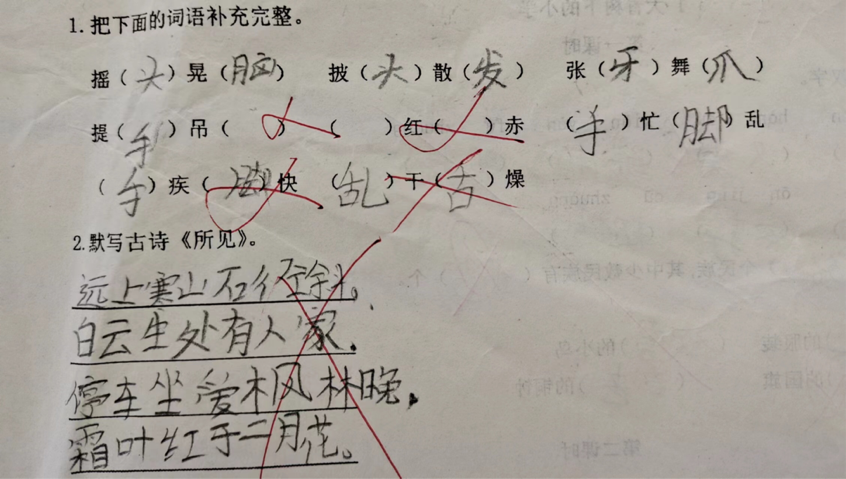 1.把下面的词语补充完整。
摇（头）晃（脑） 披（头）散（发） 张（牙）舞（爪）
提（手）吊（ ） （ ）红（ ）赤 （手）忙（脚）乱
（手）疾（脚）快 （乱）干（古）燥
2.默写古诗《所见》。
远上寒山石径斜。
白云生处有人家。
停车坐爱枫林晚。
霜叶红于二月花。
第二课时